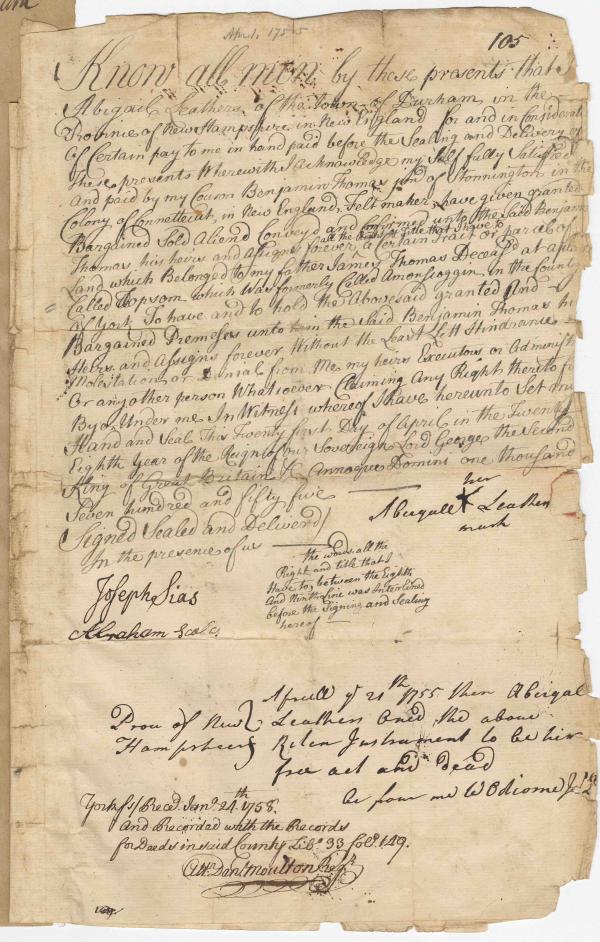 April. 1755
105
Know all men by these presents that I
Abigail Leathers of the Town of Durham in the
Province of New Hampshire in New England for and in Considerati
of Certain pay to me in hand paid before the Sealing and Delivery of
these presents Wherewith I acknowledge my Self fully Satisfied
And paid by my Couson Benjamin Thomas of Stonnington in the
Colony of Connetticut, in New England, Felt maker, have given granted
Bargained Sold Aliend Conveyd and Confirmed unto the Said Benjamin
all the Right and Title that I have to
Thomas his heirs and Assigns forever a Certain Tract or parcel of
Land which Belonged to my father James Thomas Deceasd at a place
Called Topsom which Was formerly Called Amonscoggin In the County
of York To have and to hold the Abovesaid granted And
Bargained Premeses unto him the Said Benjamin Thomas his
Heirs and Assigns forever Without the Least Lett Hindrance
Molestation or Denial from Me my heirs Executors or Administ
Or any other person Whatsoever Claiming Any Right thereto f
By or Under me In Witness whereof I have hereunto Set my
Hand and Seal This Twenty first Day of April in the Twenty
Eighth Year of the Reign of our Sovereign Lord George the Second
King of Great Britain &c Annoque Domini one thousand
Seven hundred and fifty five
Signed Sealed and Deliverd
In the presence of us
her
Abigall X Leathers
mark
the words all the
Right and title that I
Have to, between the Eighth
And Ninth Line was Interlined
before the Signing and Sealing
hereof
Joseph Sias
Abraham Scales
Aprell ye 21th 1755 then Abigal
Prov of New Leathers Oned the above
Hampsheer Reten Instrument to be her
free act and dead
be four me W Odiorne Js Ps
York ss/ Recd. Jany. 24th 1758.
And Recorded with the Records
for Deeds in said County Libo. 33 folo. 149.
Attr Danl Moulton Regr